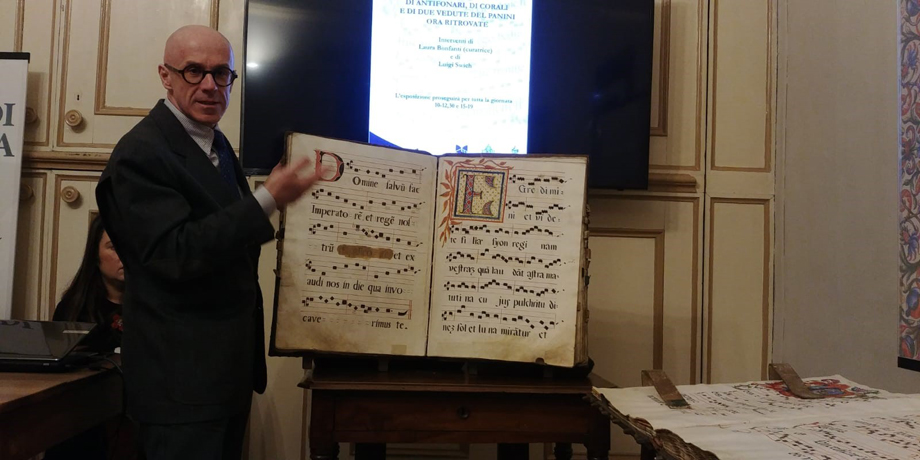 DI ANTIFONARI, DI CORALI
E DI DUE VEDUTE DEL PANINI
ORA RITROVATE
Interventi di
Laura Bonfanti (curatrice)
e di
Luigi Swich
L'esposizione proseguirà per tutta la giornata
10-12,30 e 15-19
DI
A
D
Omine salvũ fac
Imperato rẽ et regẽ nos
trũ et ex
audi nos in die qua invo
cave rimus te.
E
Gre di mi
ni et vi de
te fi liæ syon regi nam
vestraz quã lau dãt astra ma
tuti na cu jus pulchritu di
nez sol et lu na mirãtur et